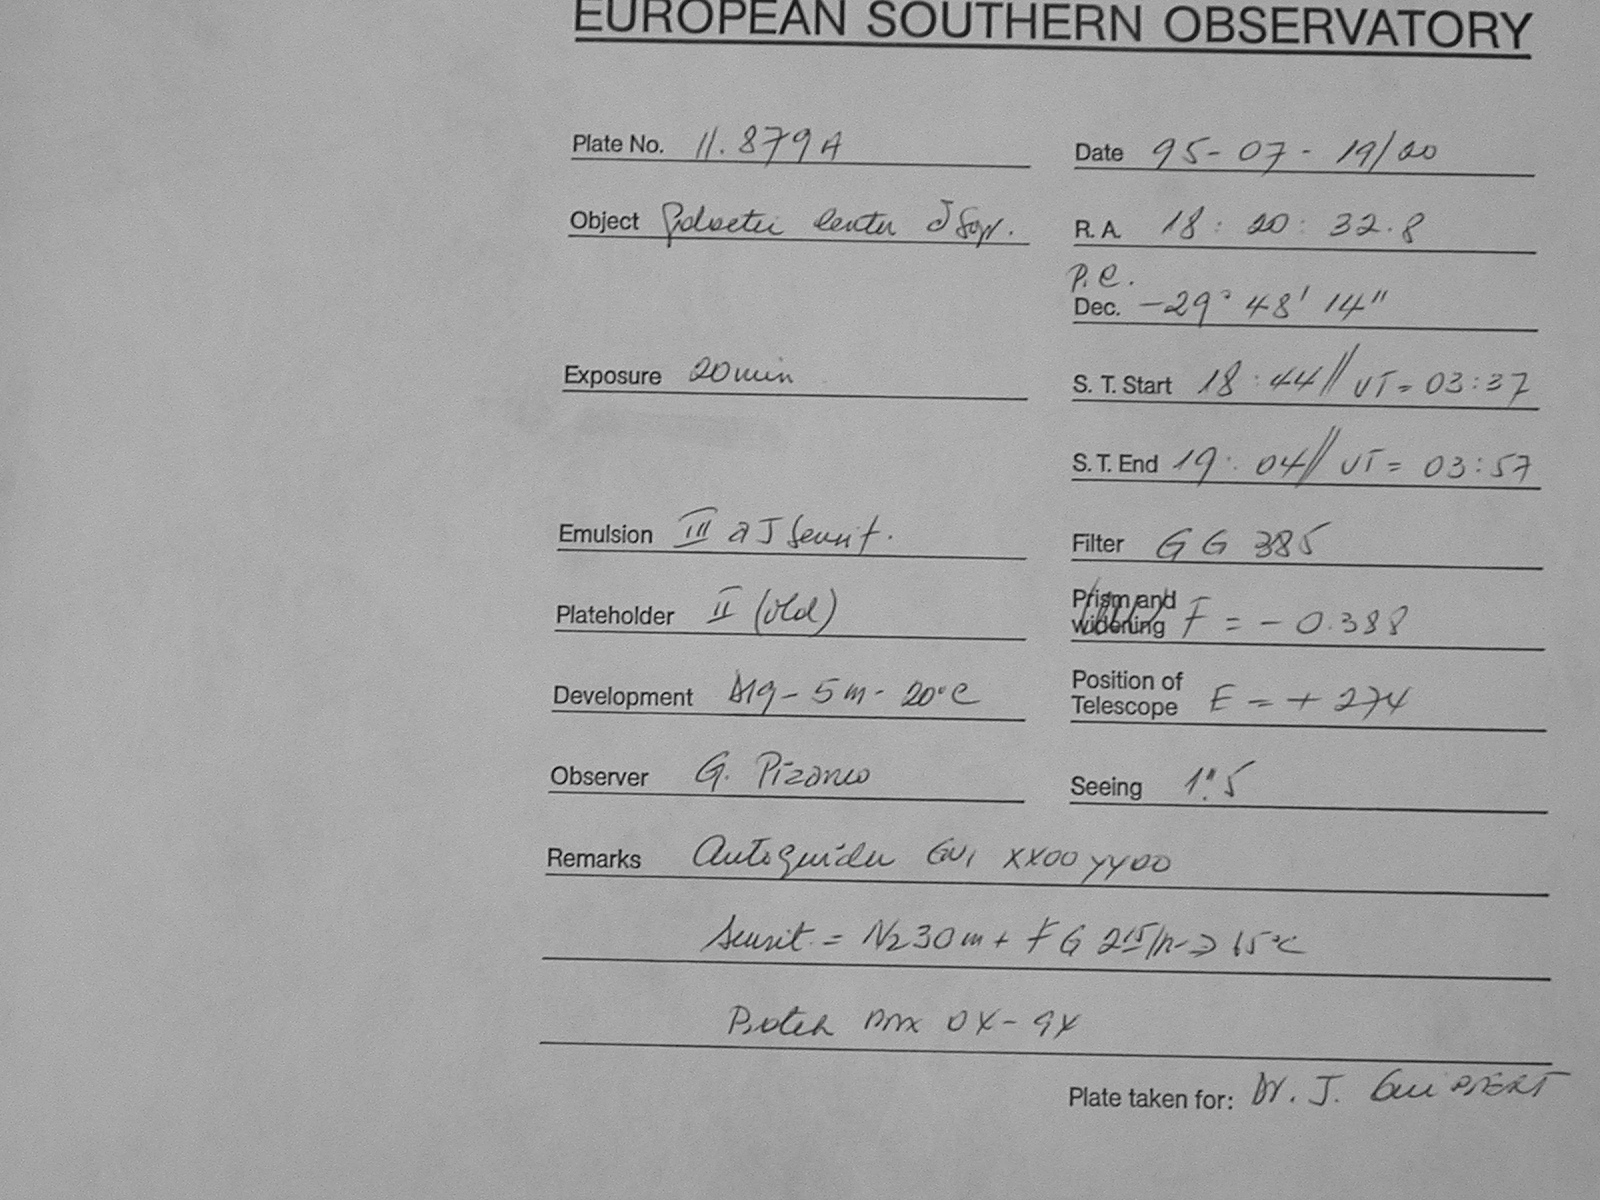 EUROPEAN SOUTHERN OBSERVATORY
Plate No. 11.879A
Date 95-07-19/20
Object Galactic Center J Sgr.
R.A. 18:20:32.8
P.C.
Dec. -29° 48' 14"
Exposure 20min
S. T. Start 18:44// UT= 03:37
S. T. End 19:04// UT= 03:57
Emulsion III a J Sensit.
Filter GG 385
Plateholder II (old)
Prism and
widening F = - 0.388
Development D19- 5m- 20°C
Position of
Telescope E = + 274
Observer G. Pizarro
Seeing 1".5
Remarks Autoguider GUI XX00 YY00
Sensit. = N2 30m + FG 2 15/h → 65°C
Batch 0X-9X
Plate taken for: Dr. J.